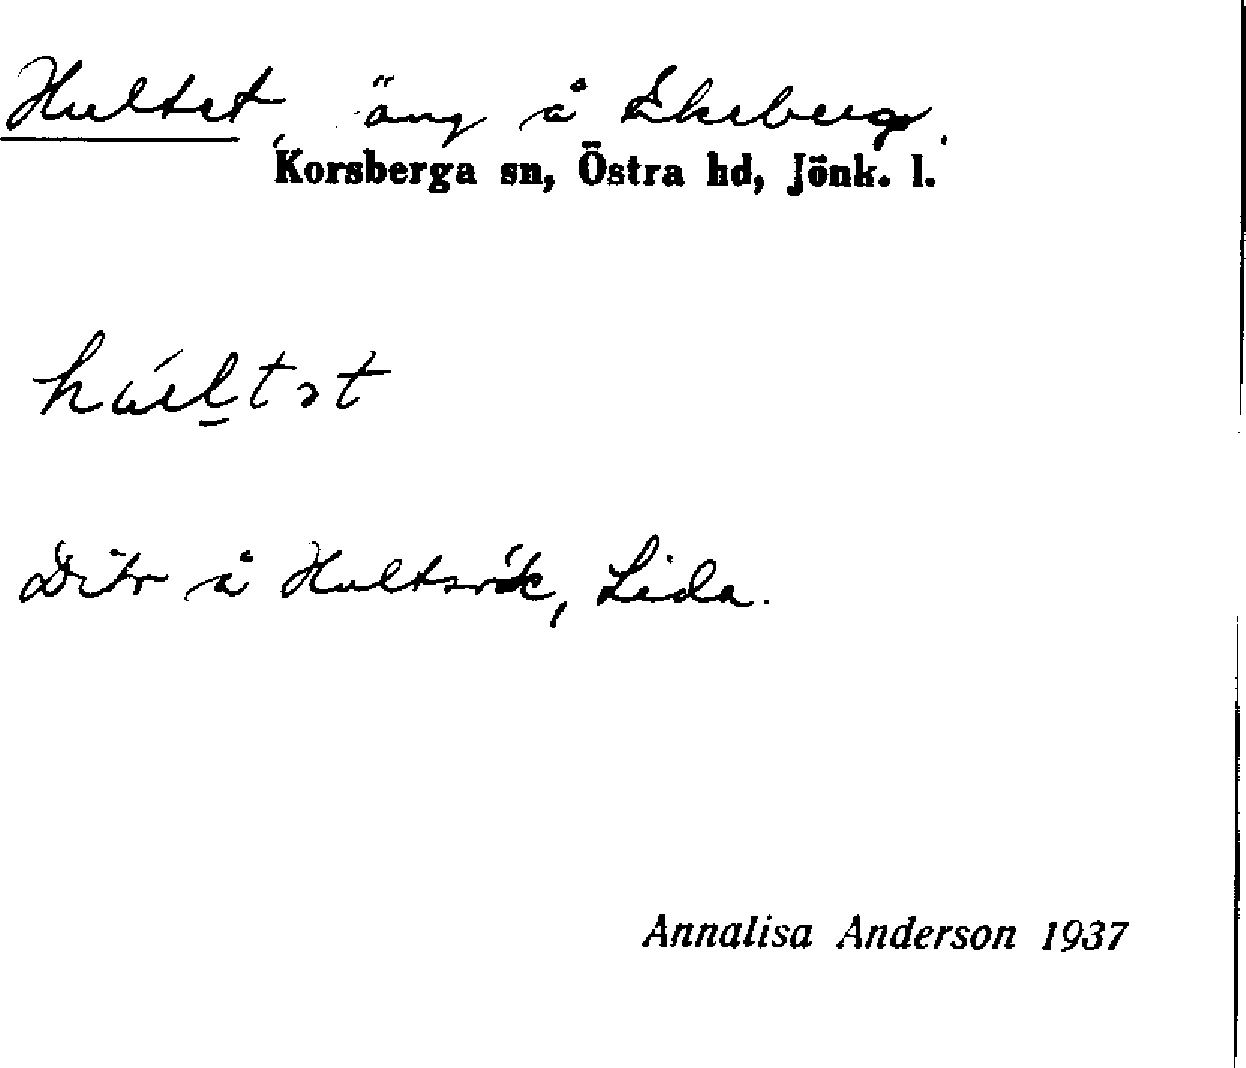 Hultet, äng å Ekeberg.
Korsberga sn, Östra hd, Jönk. l.
húltət
Dito å Hultsvik, Lida.
Annalisa Anderson 1937